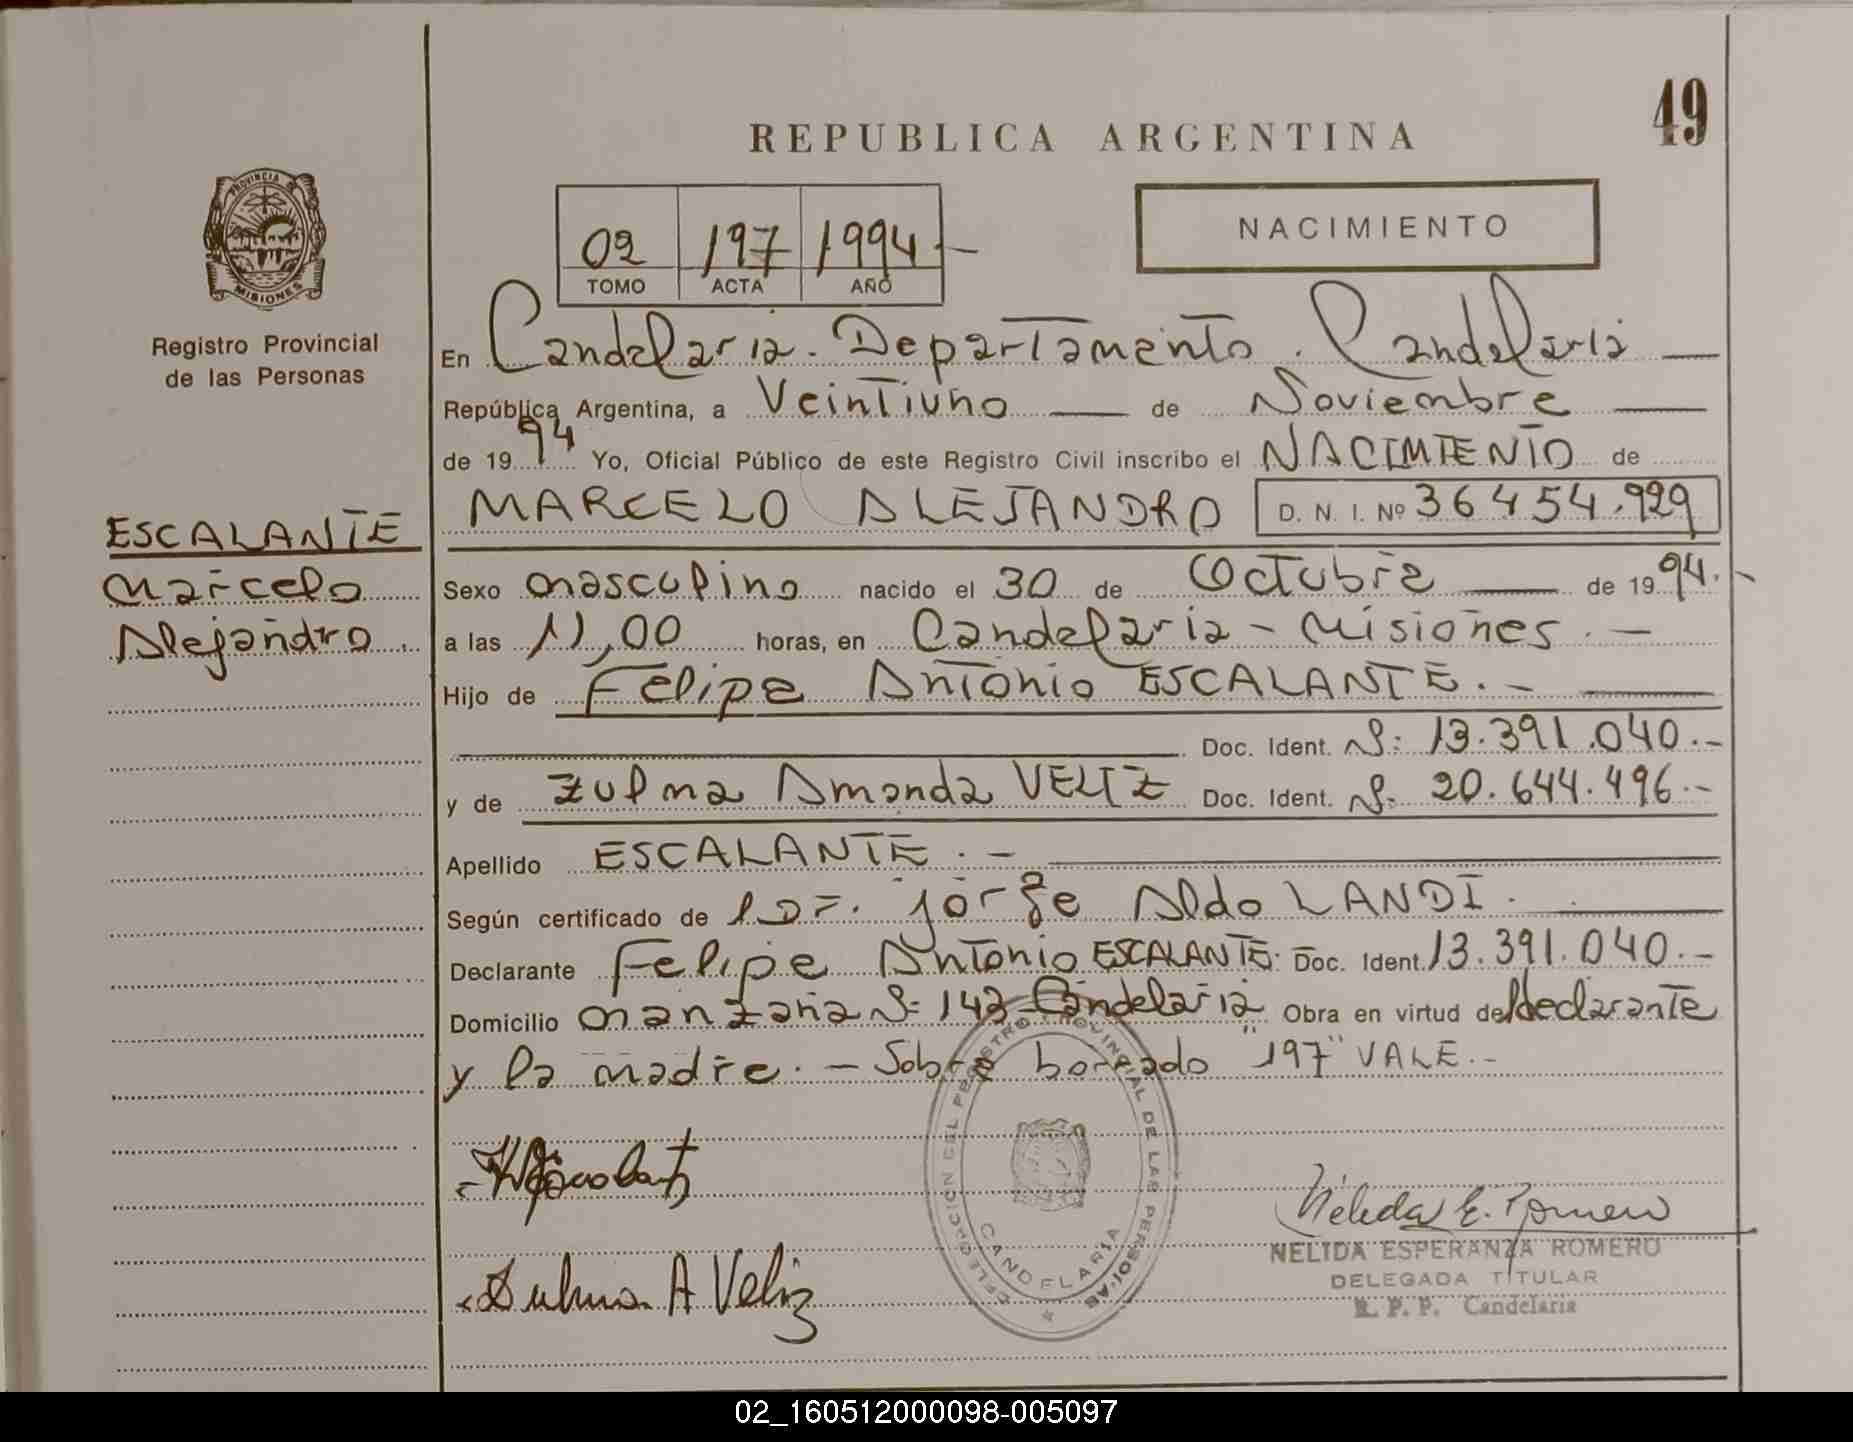 49
REPUBLICA ARGENTINA
PROVINCIA DE
MISIONES
Registro Provincial
de las Personas
NACIMIENTO
02 197 1994.-
TOMO ACTA AÑO
En Candelaria. Departamento. Candelaria
República Argentina, a Veintiuno de Noviembre
de 1994 Yo, Oficial Público de este Registro Civil inscribo el NACIMIENTO de
ESCALANTE
Marcelo
Alejandro.
MARCELO ALEJANDRO D. N. I. Nº 36454.929
Sexo masculino nacido el 30 de Octubre de 1994.-
a las 11,00 horas, en Candelaria - Misiones.-
Hijo de Felipe Antonio ESCALANTE.-
Doc. Ident. Nº: 13.391.040.-
y de Zulma Amanda VELIZ Doc. Ident. Nº 20.644.496.-
Apellido ESCALANTE.-
Según certificado de Jorge Aldo LANDI.
Declarante Felipe Antonio ESCALANTE. Doc. Ident. 13.391.040.-
Domicilio manzana Nº 142 Candelaria Obra en virtud de declarante
y la madre.- Sobre borrado "197" VALE.-
DELEGACION DEL REGISTRO PROVINCIAL DE LAS PERSONAS
CANDELARIA
Nélida E. Romero
NELIDA ESPERANZA ROMERO
DELEGADA TITULAR
R. P. P. Candelaria
A Veliz
02_160512000098-005097